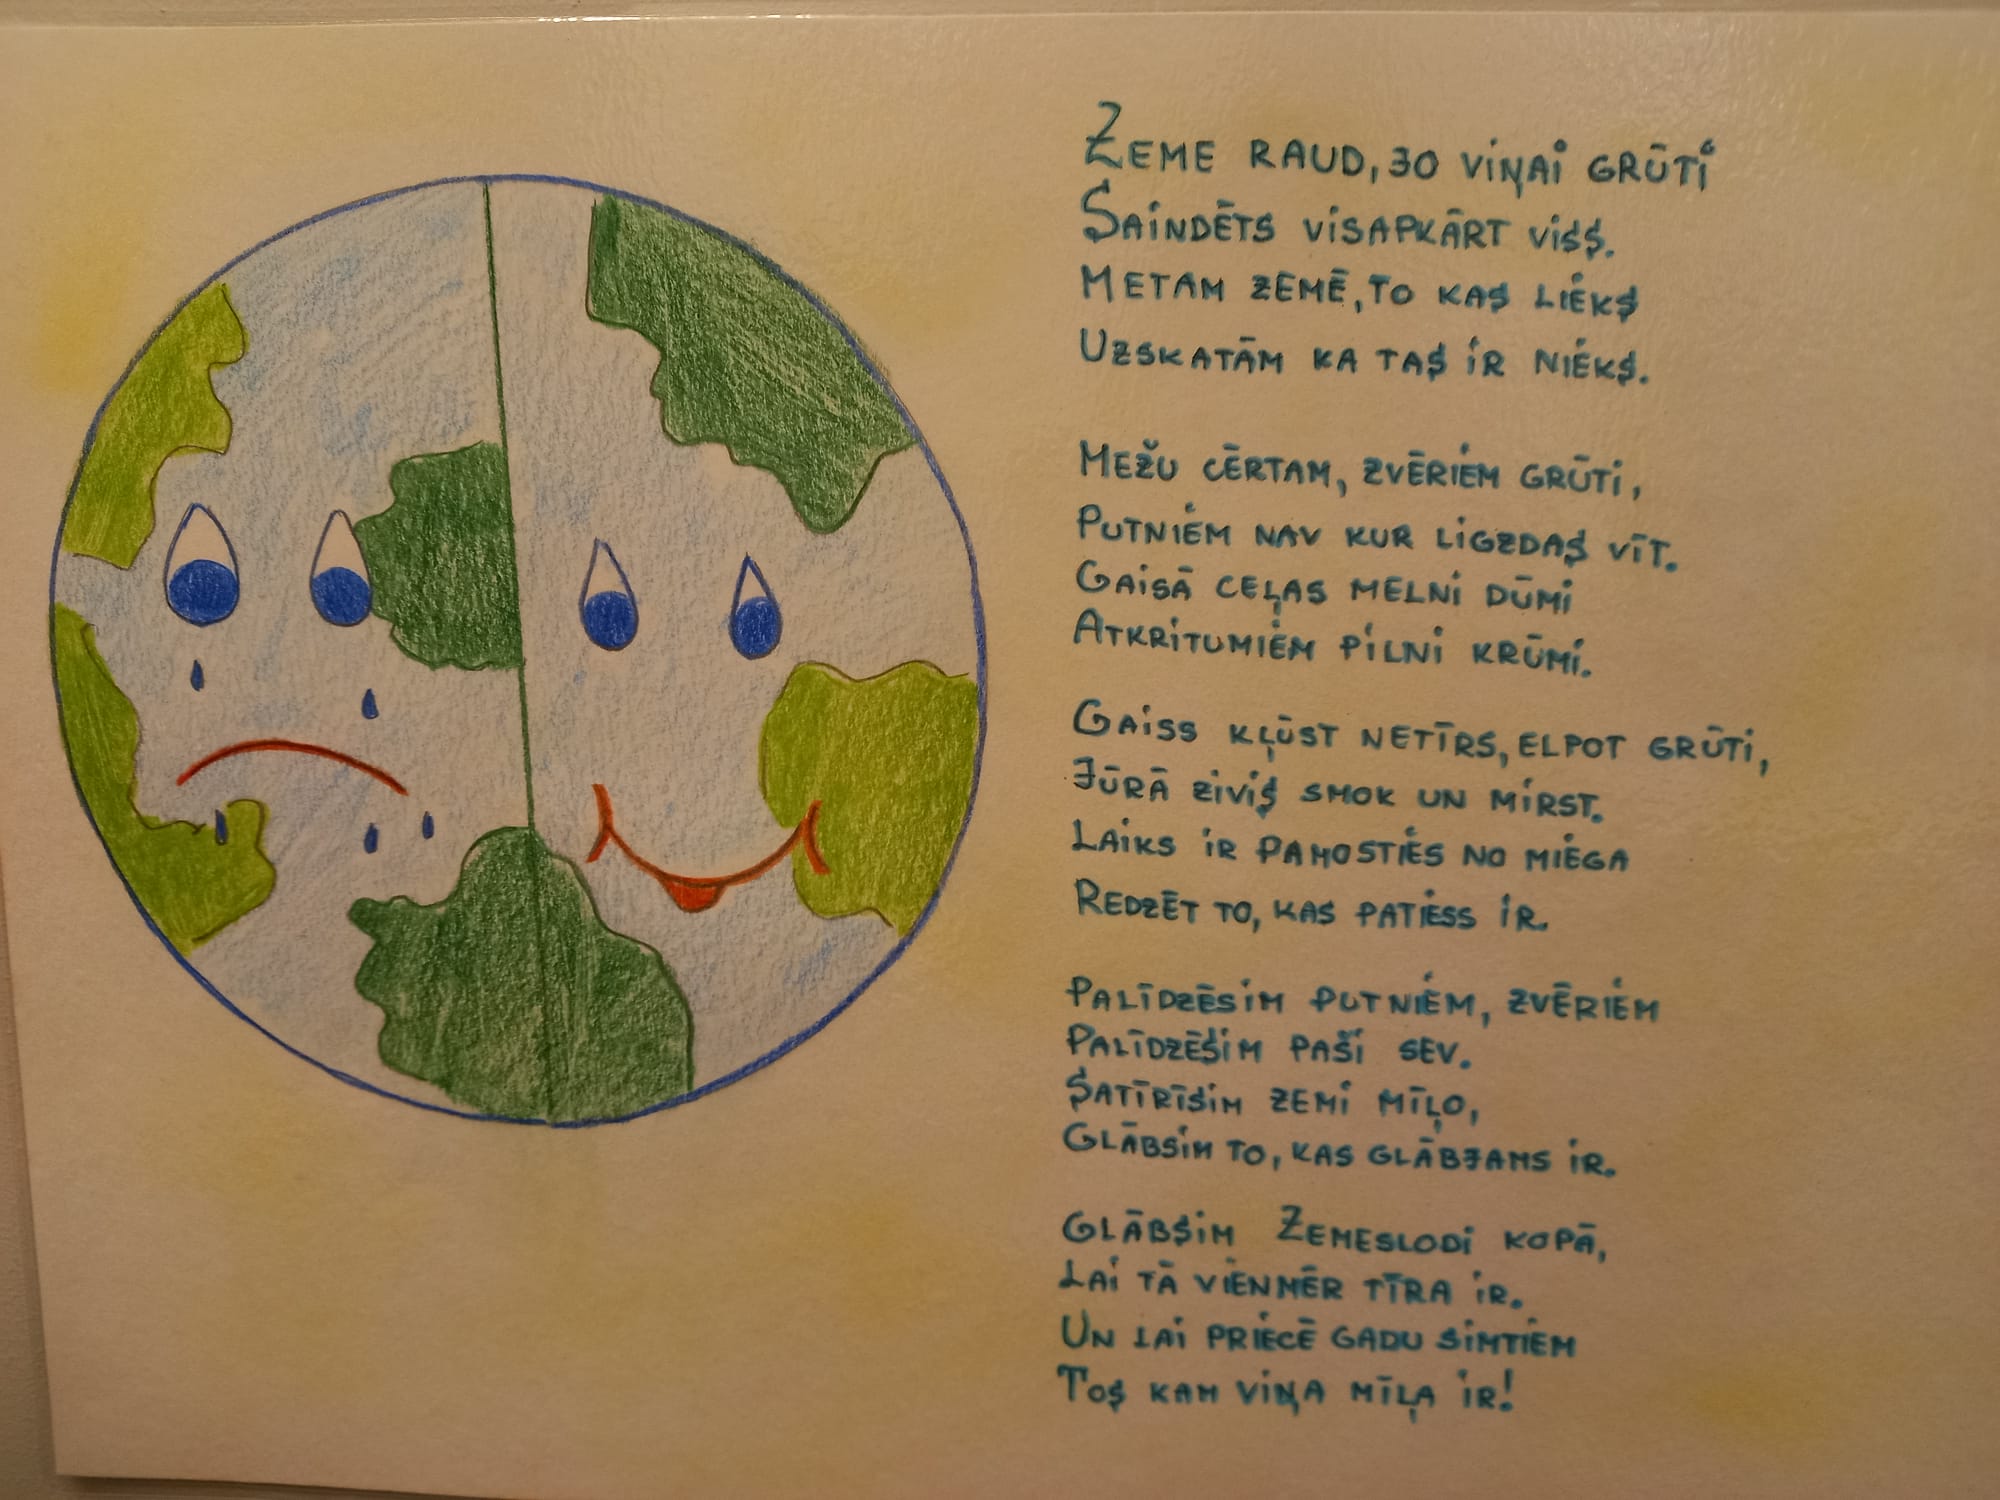 ZEME RAUD, JO VIŅAI GRŪTI
SAINDĒTS VISAPKĀRT VISS.
METAM ZEMĒ, TO KAS LIEKS
UZSKATĀM KA TAS IR NIEKS.
MEŽU CĒRTAM, ZVĒRIEM GRŪTI,
PUTNIEM NAV KUR LIGZDAS VĪT.
GAISĀ CEĻAS MELNI DŪMI
ATKRITUMIEM PILNI KRŪMI.
GAISS KĻŪST NETĪRS, ELPOT GRŪTI,
JŪRĀ ZIVIS SMOK UN MIRST.
LAIKS IR PAMOSTIES NO MIEGA
REDZĒT TO, KAS PATIESS IR.
PALĪDZĒSIM PUTNIEM, ZVĒRIEM
PALĪDZĒSIM PAŠI SEV.
SATĪRĪSIM ZEMI MĪĻO,
GLĀBSIM TO, KAS GLĀBJAMS IR.
GLĀBSIM ZEMESLODI KOPĀ,
LAI TĀ VIENMĒR TĪRA IR.
UN LAI PRIECĒ GADU SIMTIEM
TOS KAM VIŅA MĪĻA IR!